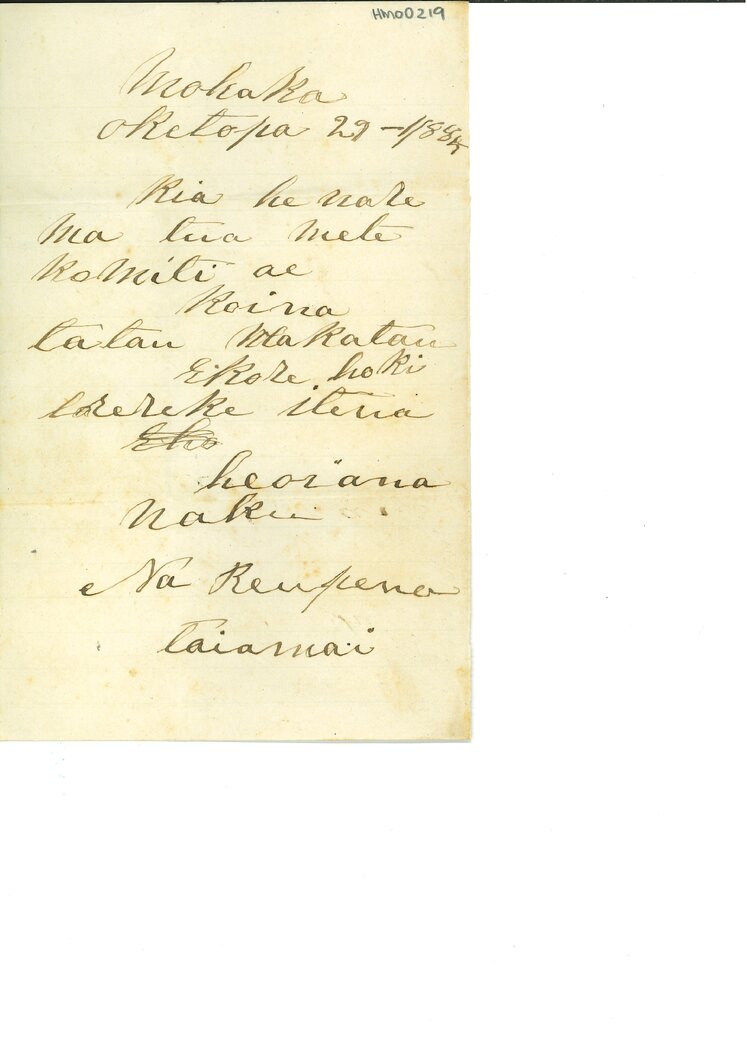 HMO0219
Mohaka
oketopa 29 – 1885
Kia he nare
ma tua mete
komiti ae
Koina
tatau Makatau
Ekore hoki
erereke itena
Eko
heoiana
Naku
Na Reupena
taiamai